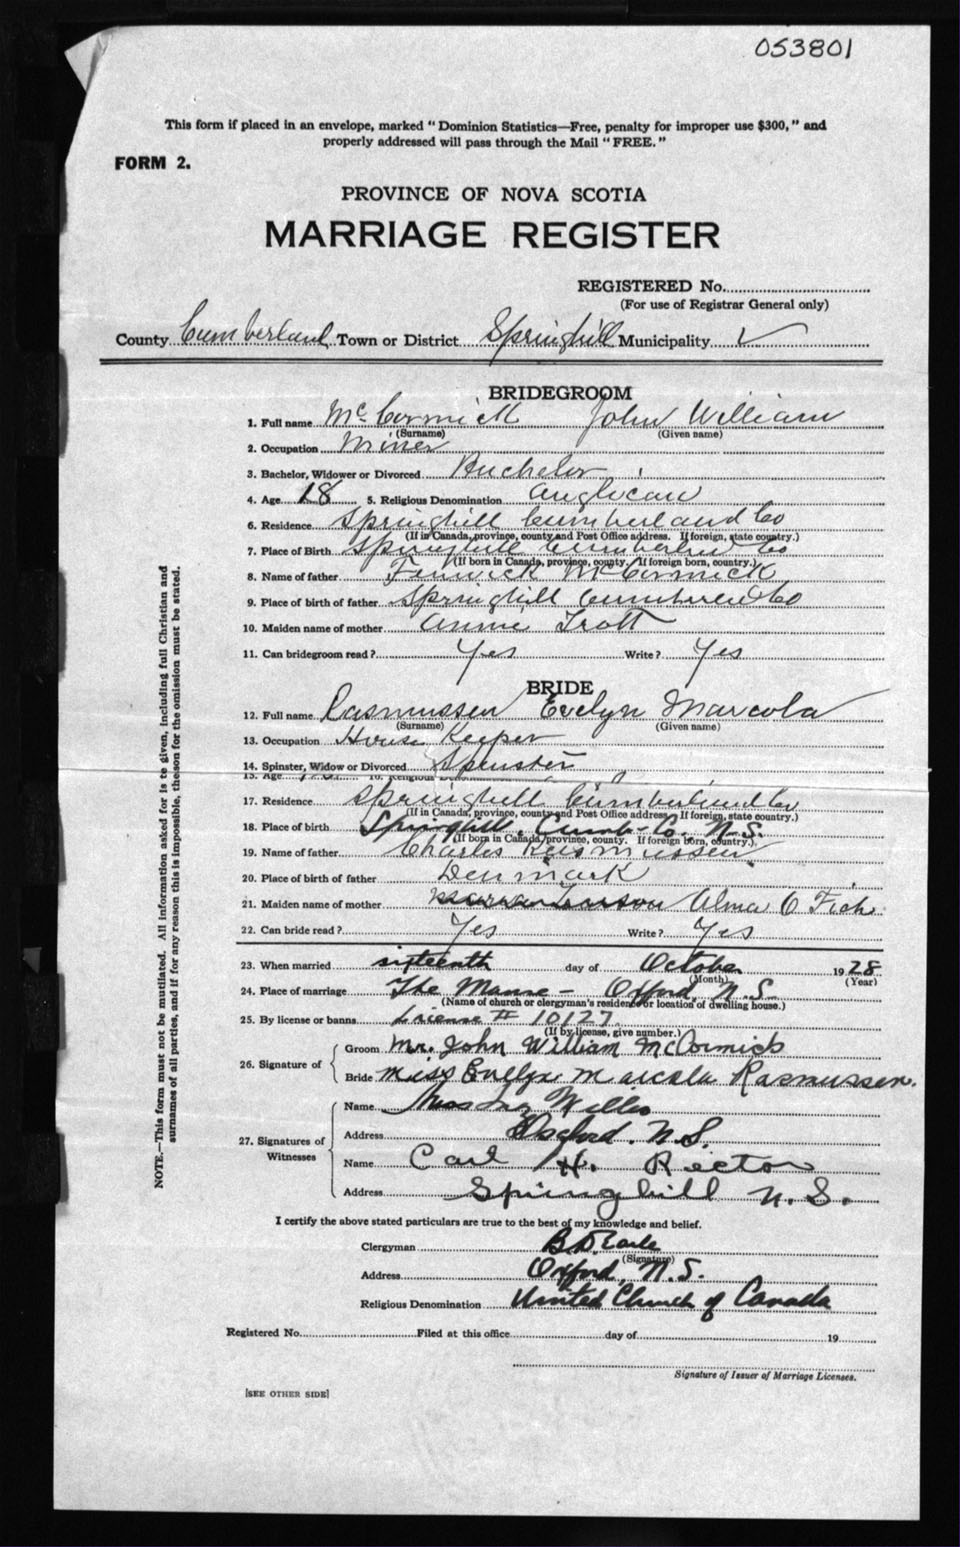 053801
This form if placed in an envelope, marked "Dominion Statistics—Free, penalty for improper use $300," and
properly addressed will pass through the Mail "FREE."
FORM 2.
PROVINCE OF NOVA SCOTIA
MARRIAGE REGISTER
REGISTERED No.
(For use of Registrar General only)
County Cumberland Town or District Springhill Municipality ✓
BRIDEGROOM
1. Full name McCormick John William
(Surname) (Given name)
2. Occupation Miner
3. Bachelor, Widower or Divorced Bachelor
4. Age 18 5. Religious Denomination Anglican
6. Residence Springhill Cumberland Co
(If in Canada, province, county and Post Office address. If foreign, state country.)
7. Place of Birth Springhill Cumberland Co
(If born in Canada, province, county. If foreign born, country.)
8. Name of father Fenwick McCormick
9. Place of birth of father Springhill Cumberland Co
10. Maiden name of mother Annie Trott
11. Can bridegroom read? Yes Write? Yes
BRIDE
12. Full name Rasmussen Evelyn Marcola
(Surname) (Given name)
13. Occupation House Keeper
14. Spinster, Widow or Divorced Spinster
15. Age 16. Religious
17. Residence Springhill Cumberland Co
(If in Canada, province, county and Post Office address. If foreign, state country.)
18. Place of birth Springhill, Cumb. Co. N.S.
(If born in Canada, province, county. If foreign born, country.)
19. Name of father Charles Rasmussen
20. Place of birth of father Denmark
21. Maiden name of mother Alma C
22. Can bride read? Yes Write? Yes
23. When married sixteenth day of October 1928
(Month) (Year)
24. Place of marriage The Manse - Oxford, N.S.
(Name of church or clergyman's residence or location of dwelling house.)
25. By license or banns License # 10127
(If by license, give number.)
26. Signature of
Groom Mr. John William McCormick
Bride Miss Evelyn Marcola Rasmussen.
27. Signatures of
Witnesses
Name Willis
Address Oxford. N.S.
Name Carl H. Rector
Address Springhill N.S.
I certify the above stated particulars are true to the best of my knowledge and belief.
Clergyman
(Signature)
Address Oxford, N.S.
Religious Denomination United Church of Canada
Registered No. Filed at this office day of 19
Signature of Issuer of Marriage Licenses.
[SEE OTHER SIDE]
NOTE.—This form must not be mutilated. All information asked for is to be given, including full Christian and
surnames of all parties, and if for any reason this is impossible, the reason for the omission must be stated.